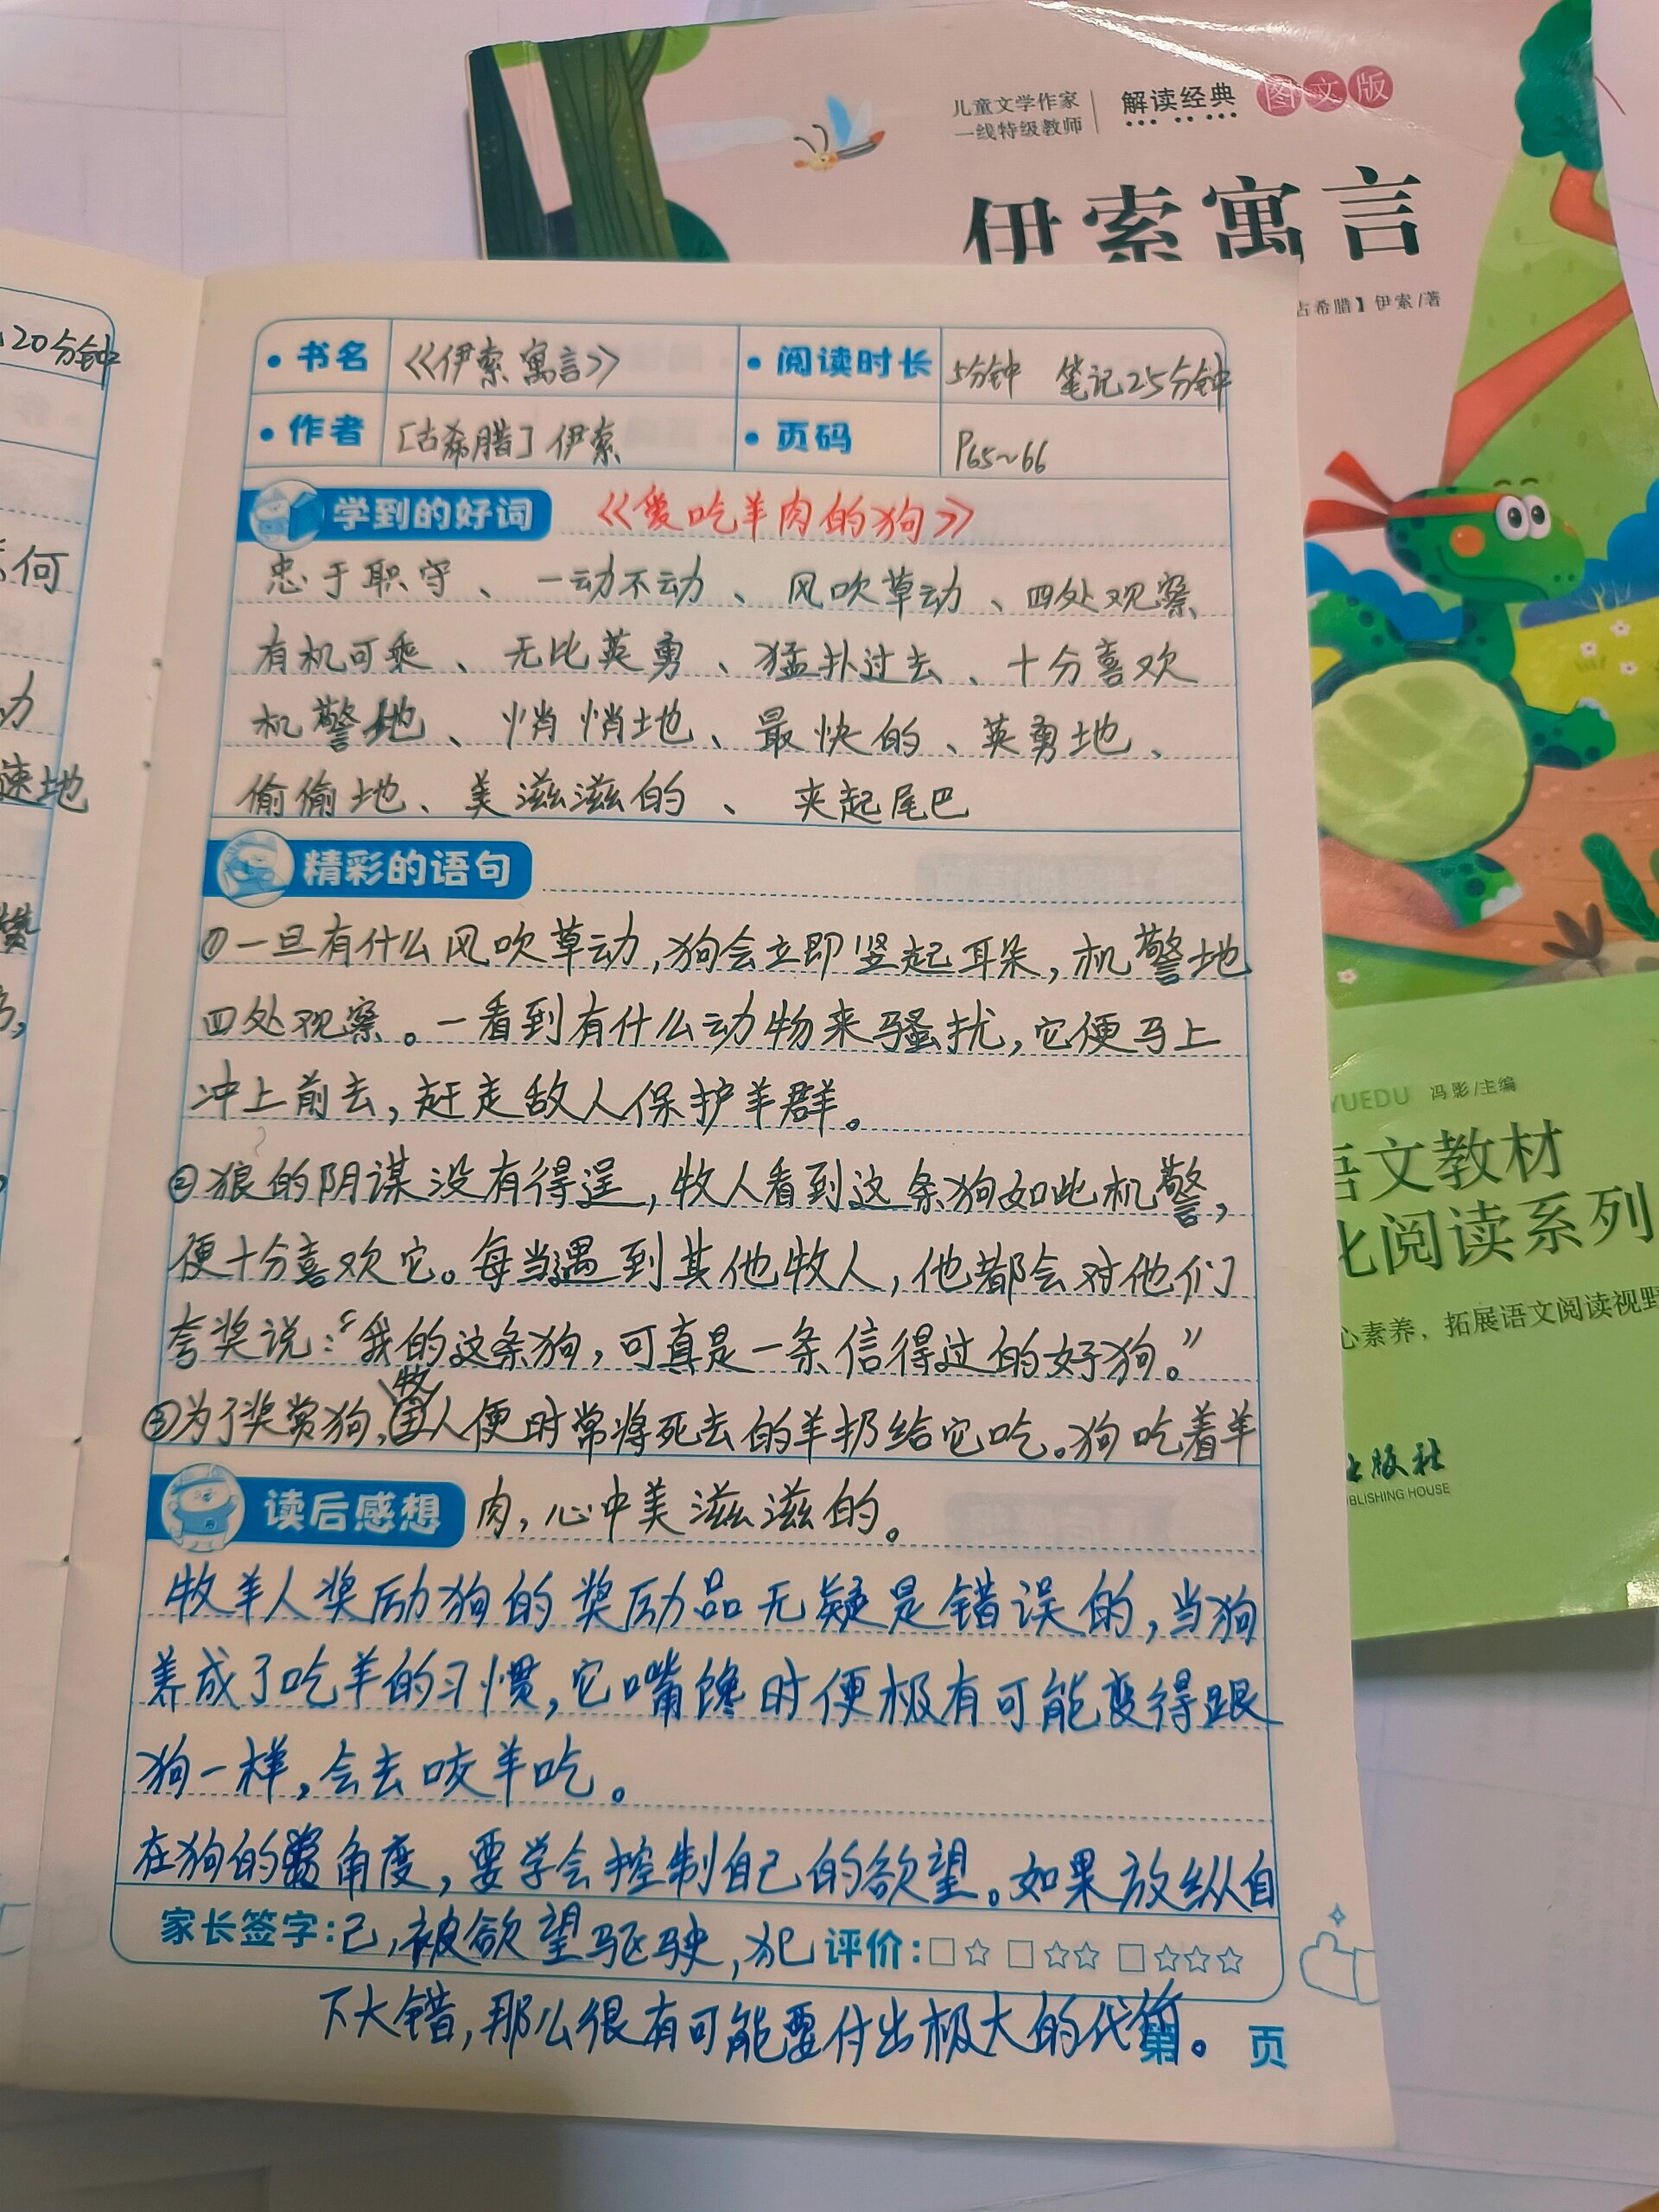 儿童文学作家
一线特级教师
解读经典 图文版
伊索寓言
古希腊】伊索/著
YUEDU 冯影/主编
语文教材
化阅读系列
心素养，拓展语文阅读视野
出版社
BLISHING HOUSE
20分钟
何
力
速地
赞
• 书名 《伊索寓言》 • 阅读时长 5分钟 笔记25分钟
• 作者 [古希腊]伊索 • 页码 P65~66
学到的好词 《爱吃羊肉的狗》
忠于职守、一动不动、风吹草动、四处观察
有机可乘、无比英勇、猛扑过去、十分喜欢
机警地、悄悄地、最快的、英勇地、
偷偷地、美滋滋的、夹起尾巴
精彩的语句
①一旦有什么风吹草动,狗会立即竖起耳朵,机警地
四处观察。一看到有什么动物来骚扰,它便马上
冲上前去,赶走敌人保护羊群。
②狼的阴谋没有得逞,牧人看到这条狗如此机警,
便十分喜欢它。每当遇到其他牧人,他都会对他们
夸奖说:“我的这条狗,可真是一条信得过的好狗。”
③为了奖赏狗,牧人便时常将死去的羊扔给它吃。狗吃着羊
读后感想 肉,心中美滋滋的。
牧羊人奖励狗的奖励品无疑是错误的,当狗
养成了吃羊的习惯,它嘴馋时便极有可能变得跟
狗一样,会去咬羊吃。
在狗的角度,要学会控制自己的欲望。如果放纵自
家长签字: 己,被欲望驱驶,犯 评价:□☆ □☆☆ □☆☆☆
下大错,那么很有可能要付出极大的代价。
第 页